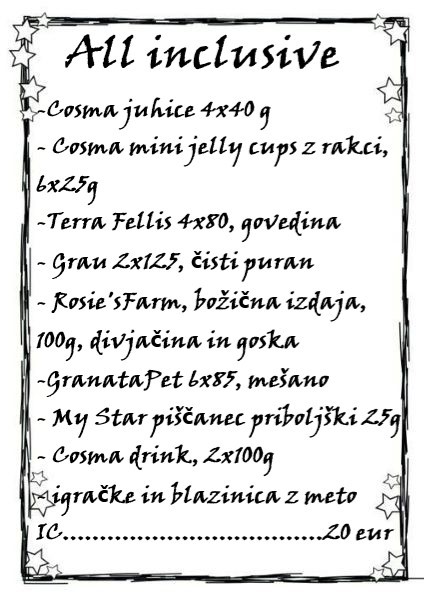 All inclusive
-Cosma juhice 4x40 g
- Cosma mini jelly cups z rakci,
6x25g
-Terra Fellis 4x80, govedina
- Grau 2x125, čisti puran
- Rosie'sFarm, božična izdaja,
100g, divjačina in goska
-GranataPet 6x85, mešano
- My Star piščanec priboljški 25g
- Cosma drink, 2x100g
- igračke in blazinica z meto
IC....................................20 eur